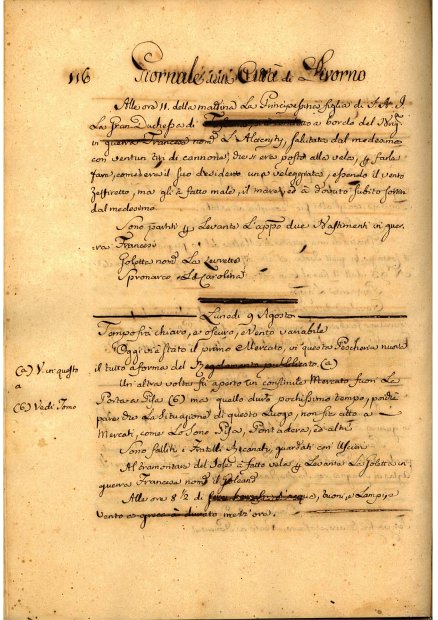 116 Giornale Città di Livorno
Alle ore 11. della mattina La Principessina figlia di S. A. I.
La Gran Duchessa di a bordo del
in guerra Francese nom.º L'Alacrity, salutata dal medesimo
con ventun tiri di cannone, che si era posto alla vela, farla
fare, come era il suo desiderio una veleggiata, essendo il vento
Zeffiretto, ma gli à fatto male il mare, ed à dovuto subito sortire
dal medesimo.
Sono partiti Levante L'app.º due Bastimenti in guer-
ra Francesi
Goletta nom.ª La Levretta
Spronarco La Carolina
Lunedì 9 Agosto
Tempo frà chiaro, e oscuro, e vento variabile
Oggi vi è stato il primo Mercato, in questa Pescheria nuova
il tutto a forma del Regolamento pubblicato. (a)
(a) V. in questo
a
Un'altra volta fù aperto un consimile Mercato fuori La
Porta a Pisa (6) ma quello durò pochissimo tempo, poichè
(6) Vedi Tomo
pare che La Situazione di questo Luogo, non sia atta a
Mercati, come Lo Sono Pisa, Pontadera, ed altri
Sono falliti i Fratelli Recanati, guardati con
Al tramontare del Sole à fatto vela Levante La Goletta in
guerra Francese nom.ª
Alle ore 8 1/2 di tuoni, e Lampi, e
vento à durato mezz'ora.